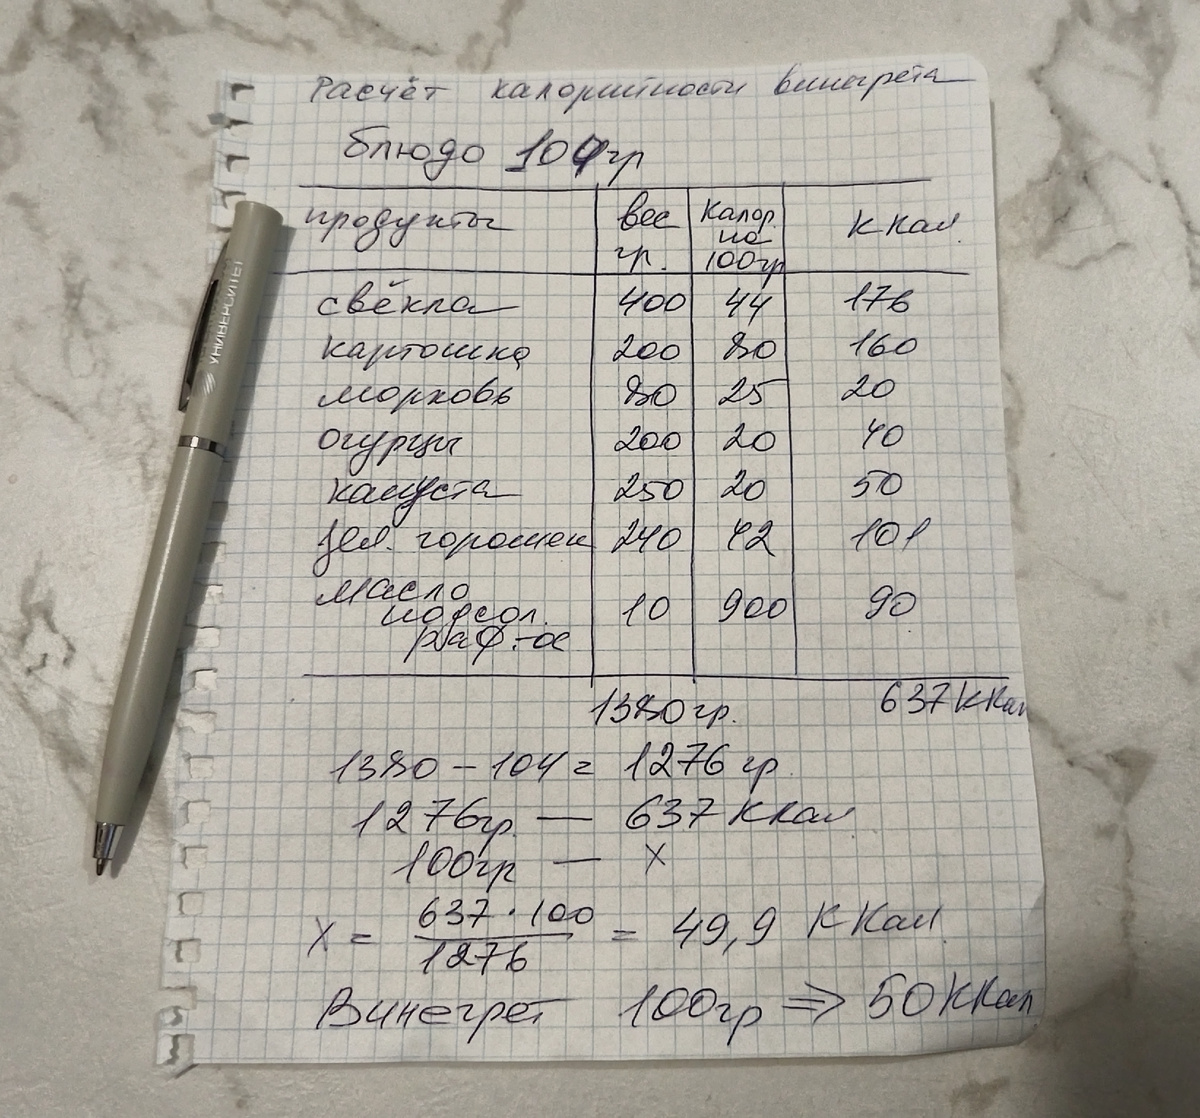 Расчёт калорийности винегрета
блюдо 104гр
продукты | вес гр. | Калор. на 100гр | ККал.
свёкла 400 44 176
картошка 200 80 160
морковь 80 25 20
огурцы 200 20 40
капуста 250 20 50
зел. горошек 240 42 101
масло подсол. раф-ое 10 900 90
1380гр. 637ККал
1380 - 104 = 1276 гр.
1276гр. — 637 ККал
100гр — х
Х = 637 · 100 / 1276 = 49,9 ККал.
Винегрет 100гр ⇒ 50ККал
УНИВЕРСИТЕТ